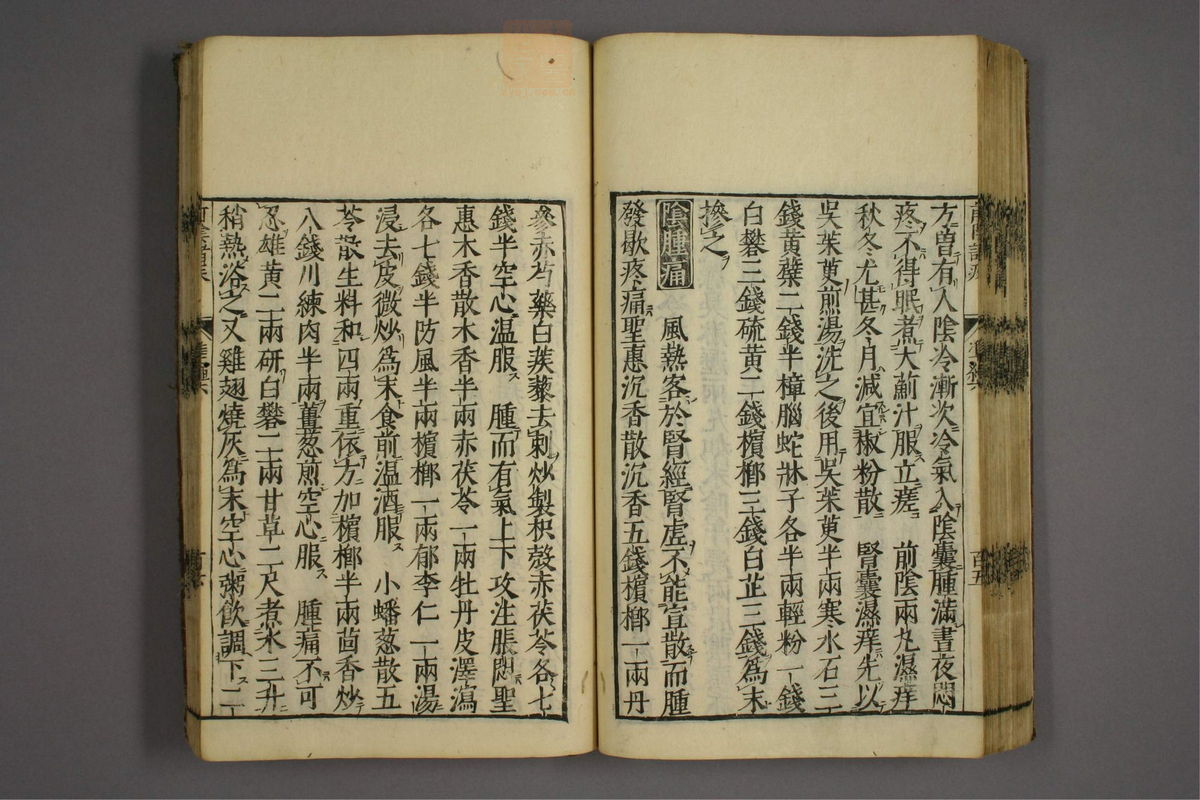 方曽有人陰冷漸次冷氣入陰囊腫滿晝夜悶
疼不得眠煮大薊汁服立瘥 前陰兩丸濕痒
秋冬尤甚冬月減宜椒粉散 腎囊濕痒先以
吳茱萸煎湯洗之後用吳茱萸半兩寒水石三
錢黄蘗二錢半樟腦蛇牀子各半兩輕粉一錢
白礬三錢硫黄二錢檳榔三錢白芷三錢爲末
摻之
陰腫痛 風熱客於腎經腎虛不能宣散而腫
發歇疼痛聖惠沉香散沉香五錢檳榔一兩丹
參赤芍藥白蒺藜去刺炒製枳殻赤茯苓各七
錢半空心温服 腫而有氣上下攻注脹悶聖
惠木香散木香半兩赤茯苓一兩牡丹皮澤瀉
各七錢半防風半兩檳榔一兩郁李仁一兩湯
浸去皮微炒爲末食前温酒服 小蟠葱散五
苓散生料和四兩重依方加檳榔半兩茴香炒
入錢川練肉半兩薑葱煎空心服 腫痛不可
忍雄黄二兩研白礬二兩甘草二尺煮水三升
稍熱浴之又雞翅燒灰爲末空心粥飲調下二
百五